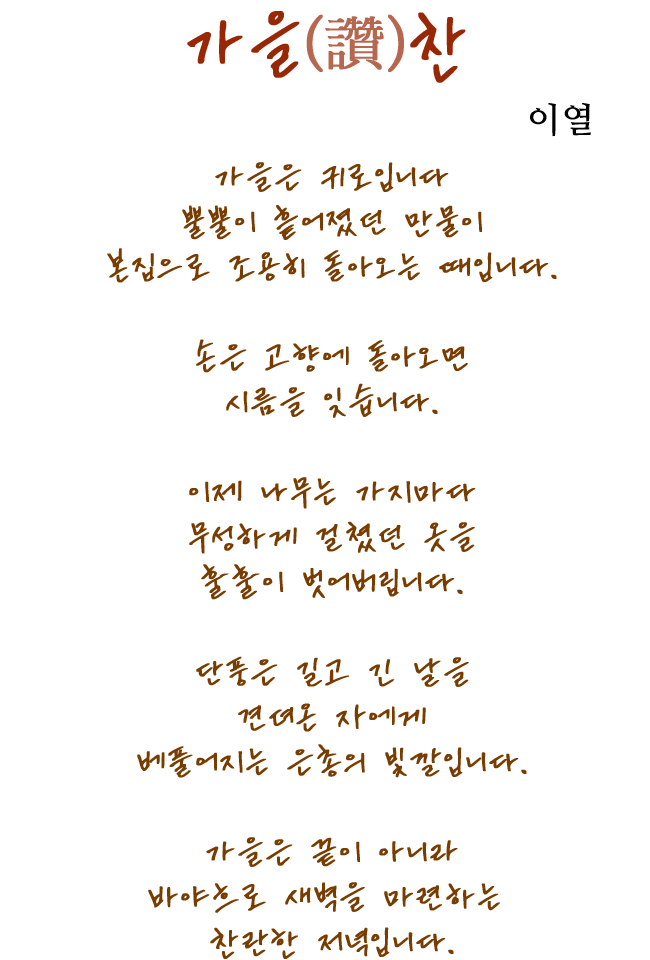 가을(讚)찬
이열
가을은 귀로입니다
뿔뿔이 흩어졌던 만물이
본집으로 조용히 돌아오는 때입니다.
손은 고향에 돌아오면
시름을 잊습니다.
이제 나무는 가지마다
무성하게 걸쳤던 옷을
훌훌이 벗어버립니다.
단풍은 길고 긴 날을
견뎌온 자에게
베풀어지는 은총의 빛깔입니다.
가을은 끝이 아니라
바야흐로 새벽을 마련하는
찬란한 저녁입니다.